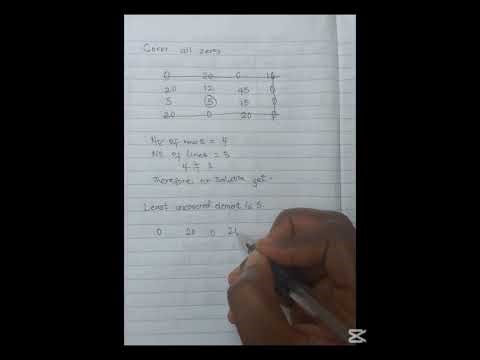 Cover all zeros
0 20 0 16
20 12 45 0
5 5 15 0
20 0 20 0
No of rows = 4
No of lines = 3
4 ≠ 3
Therefore no solution yet.
Least uncovered element is 5.
0 20 0 21